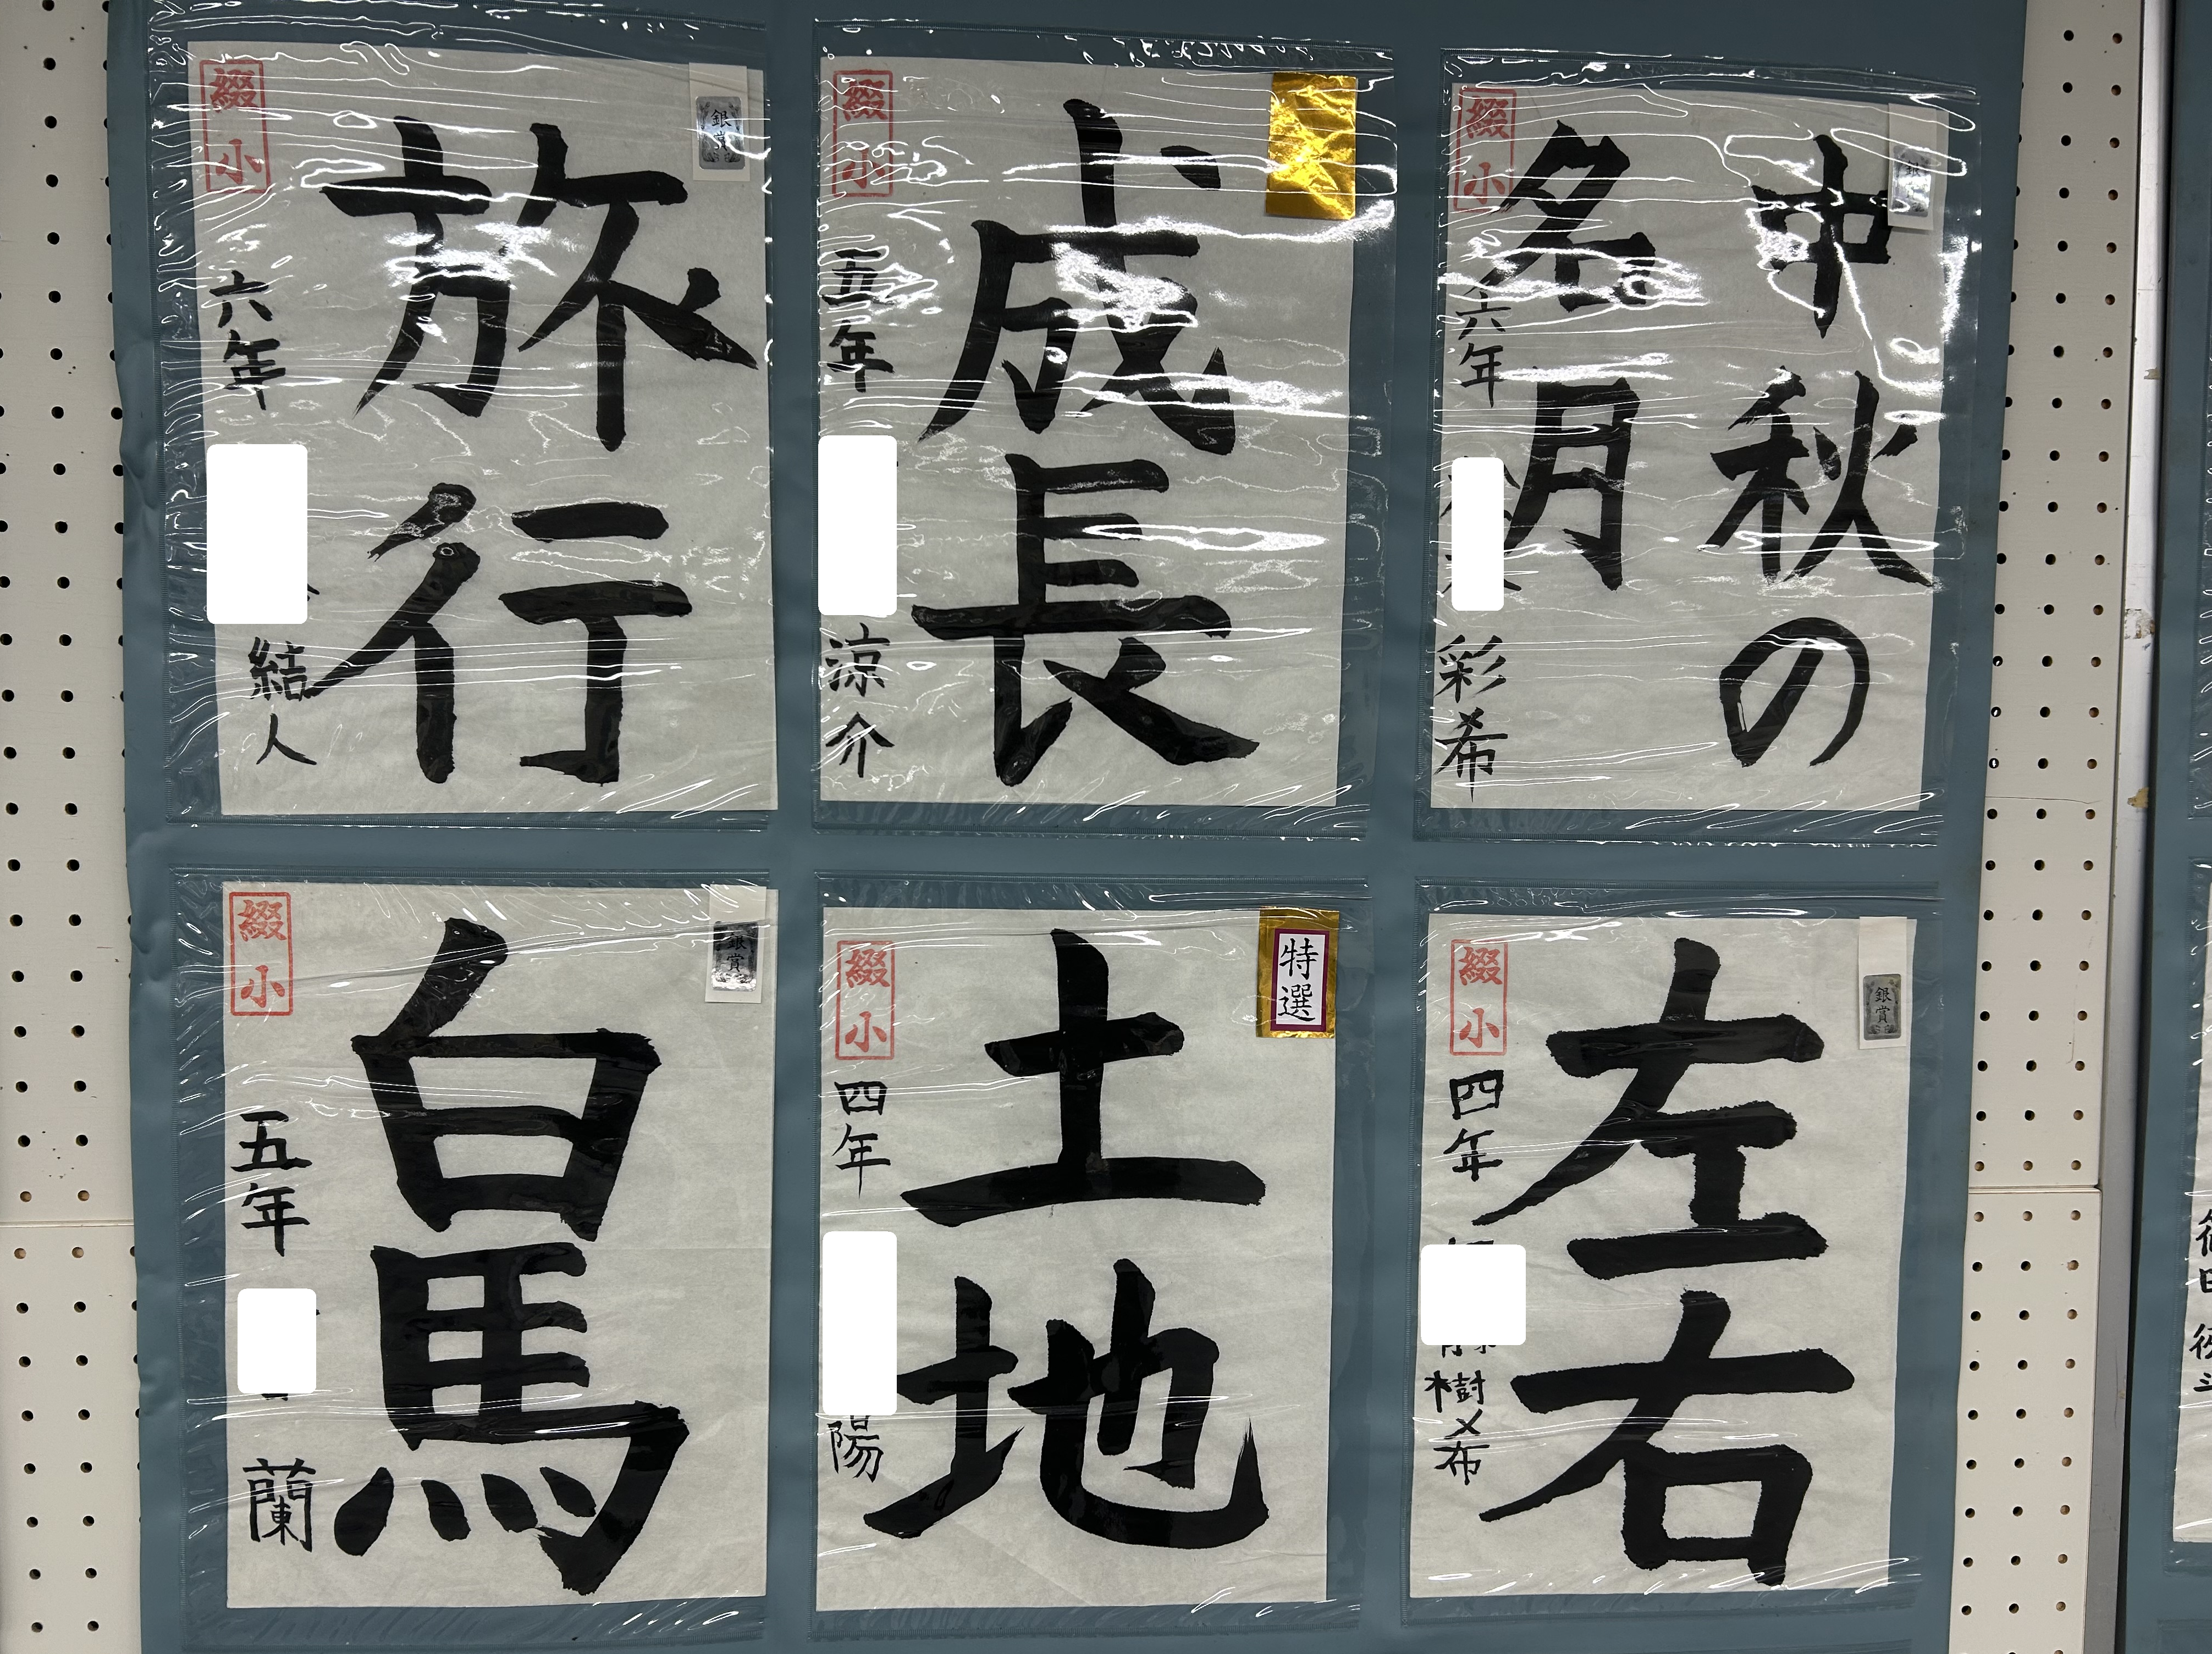 綴小
六年
結人
旅行
銀賞
綴小
五年
涼介
成長
綴小
六年
彩希
中秋の
名月
銀
綴小
五年
蘭
白馬
銀賞
綴小
四年
陽
土地
特選
綴小
四年
樹
布
左右
銀賞